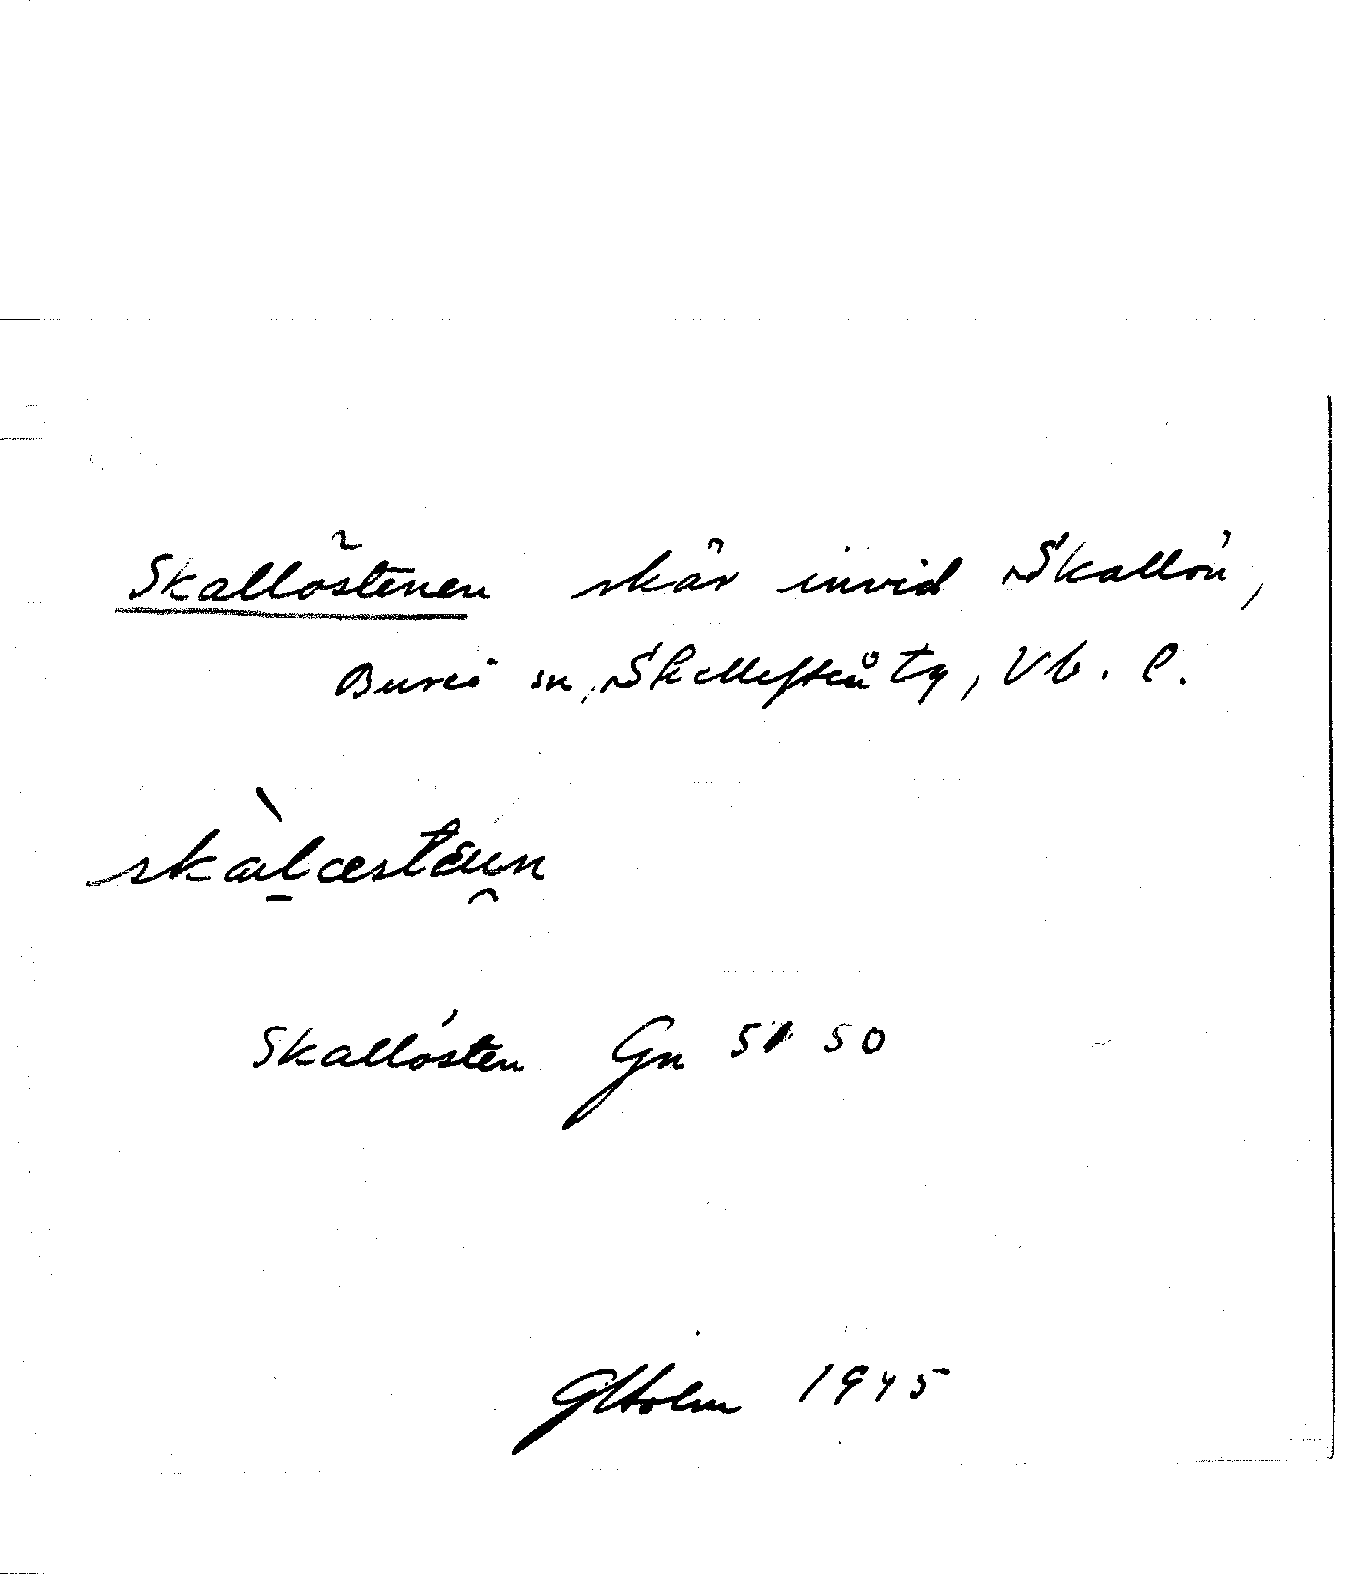 Skallöstenen skär invid Skallön,
Bureå sn, Skellefteå tg, Vb. l.
skàl̠œstäu̯n
Skallösten Gn 51 50
GHolm 1945